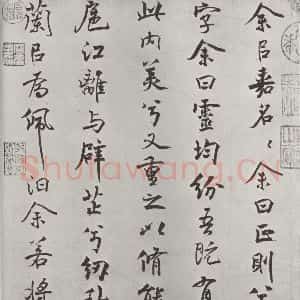 余㠯嘉名〻余曰正則兮
字余曰靈均紛吾既有
此內美兮又重之以脩能
扈江離与辟芷兮紉秋
蘭㠯為佩汩余若將
Shufawang.CN